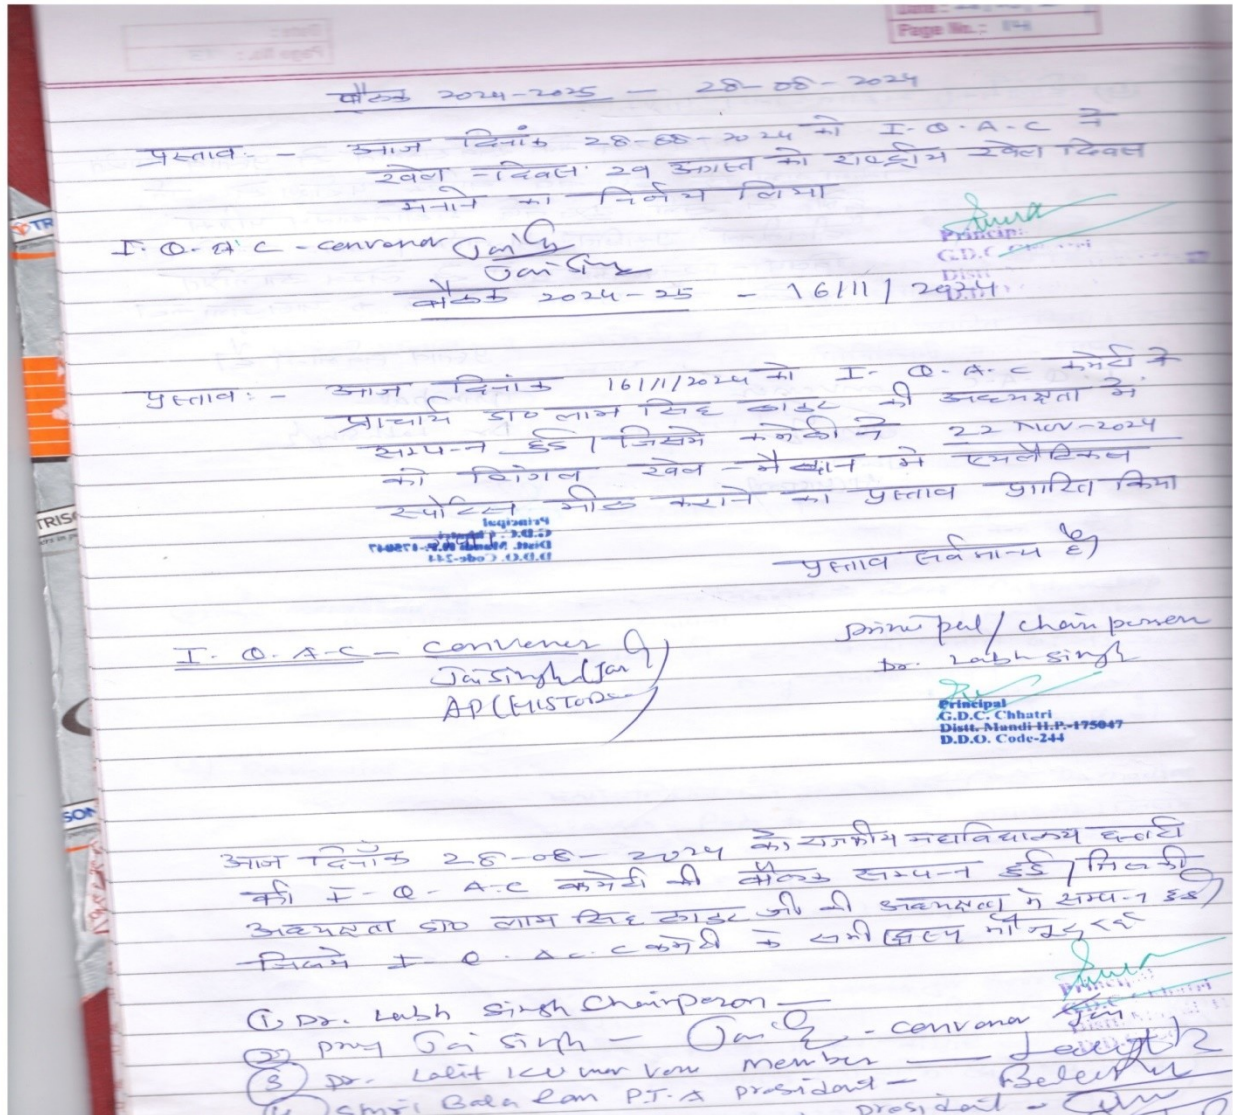 Page No.: 14
बैठक 2024-2025 - 28-08-2024
प्रस्ताव:- आज दिनांक 28-08-2024 को I.Q.A.C ने
खेल-दिवस: 29 अगस्त को राष्ट्रीय खेल दिवस
मनाने का निर्णय लिया
I.Q.A.C - convenor
Jai Singh
Principal
G.D.C. Chhatri
Distt
बैठक 2024-25 - 16/11/2024
प्रस्ताव:- आज दिनांक 16/11/2024 को I.Q.A.C कमेटी ने
प्राचार्य डा० लाभ सिंह की अध्यक्षता में
सम्पन्न हुई। जिसमें कमेटी ने 22 Nov-2024
को खेल-मैदान में एथलैटिक्स
स्पोर्टस मीट कराने का प्रस्ताव पारित किया
प्रस्ताव सर्वमान्य है
I.Q.A.C - convener
Jai Singh (Jai)
AP (HISTORY)
principal/chairperson
Dr. Labh Singh
Principal
G.D.C. Chhatri
Distt. Mandi H.P.-175047
D.D.O. Code-244
आज दिनाँक 28-08-2024 को राजकीय महाविद्यालय छतरी
की I.Q.A.C कमेटी की बैठक सम्पन्न हुई। जिसकी
अध्यक्षता डा० लाभ सिंह जी की अध्यक्षता में सम्पन्न हुई
जिसमें I.Q.A.C कमेटी के सभी सदस्य मौजूद रहे
(1) Dr. Labh Singh Chairperson -
(2) Prof Jai Singh - convenor
(3) Dr. Lalit Kumar member
(4) Smri Bala Ram P.T.A president -
president -